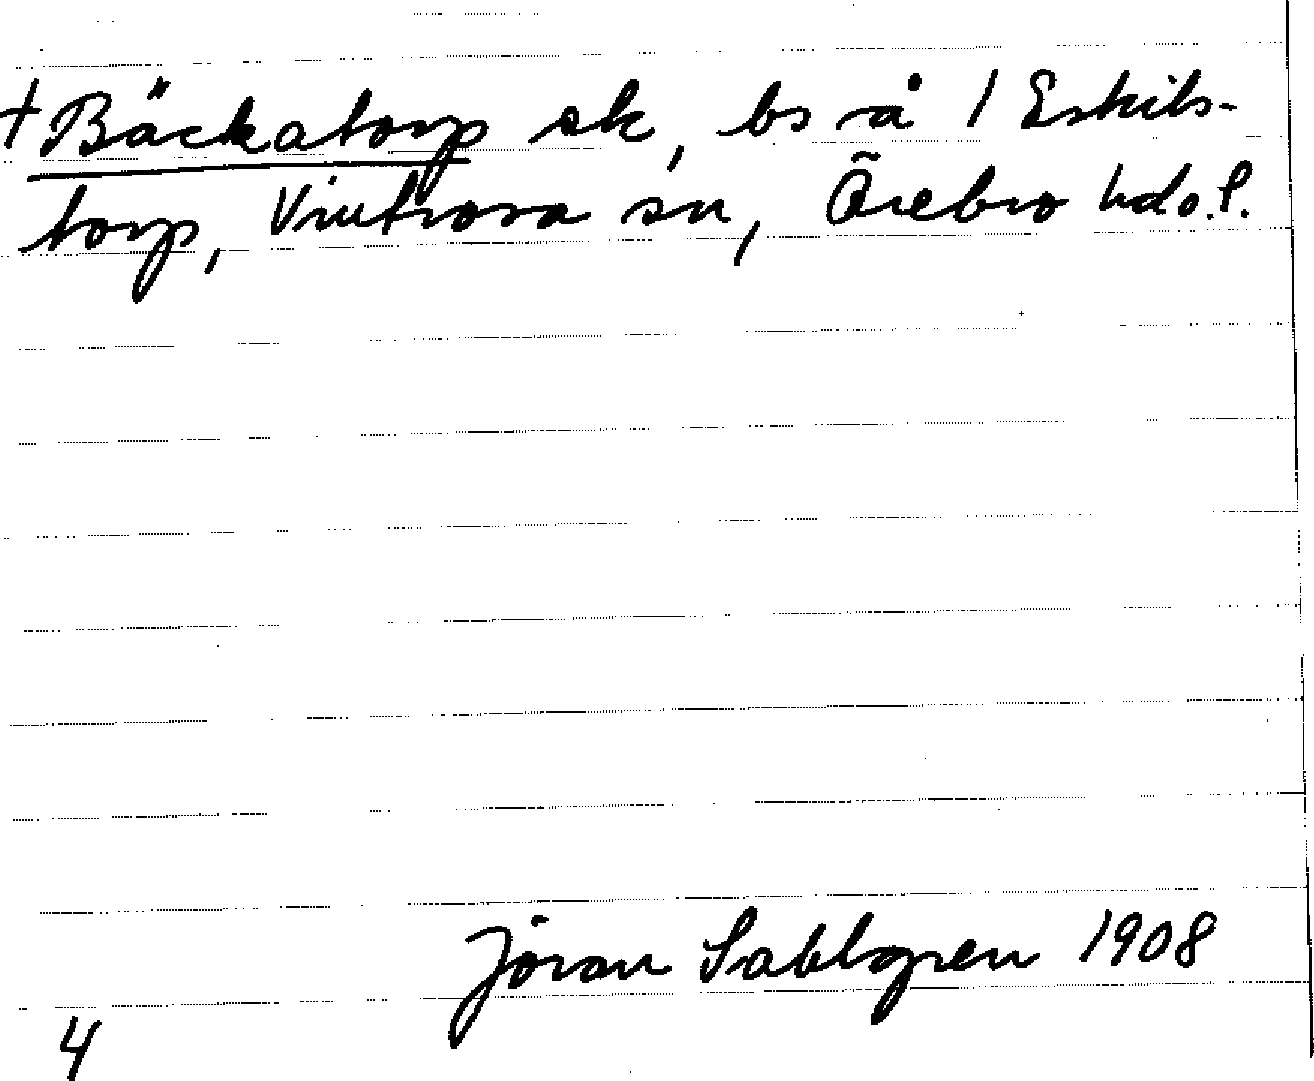 + Bäckatorp sk, bs å 1 Eskils-
torp, Vintrosa sn, Örebro hd ö.l.
Jöran Sahlgren 1908
4